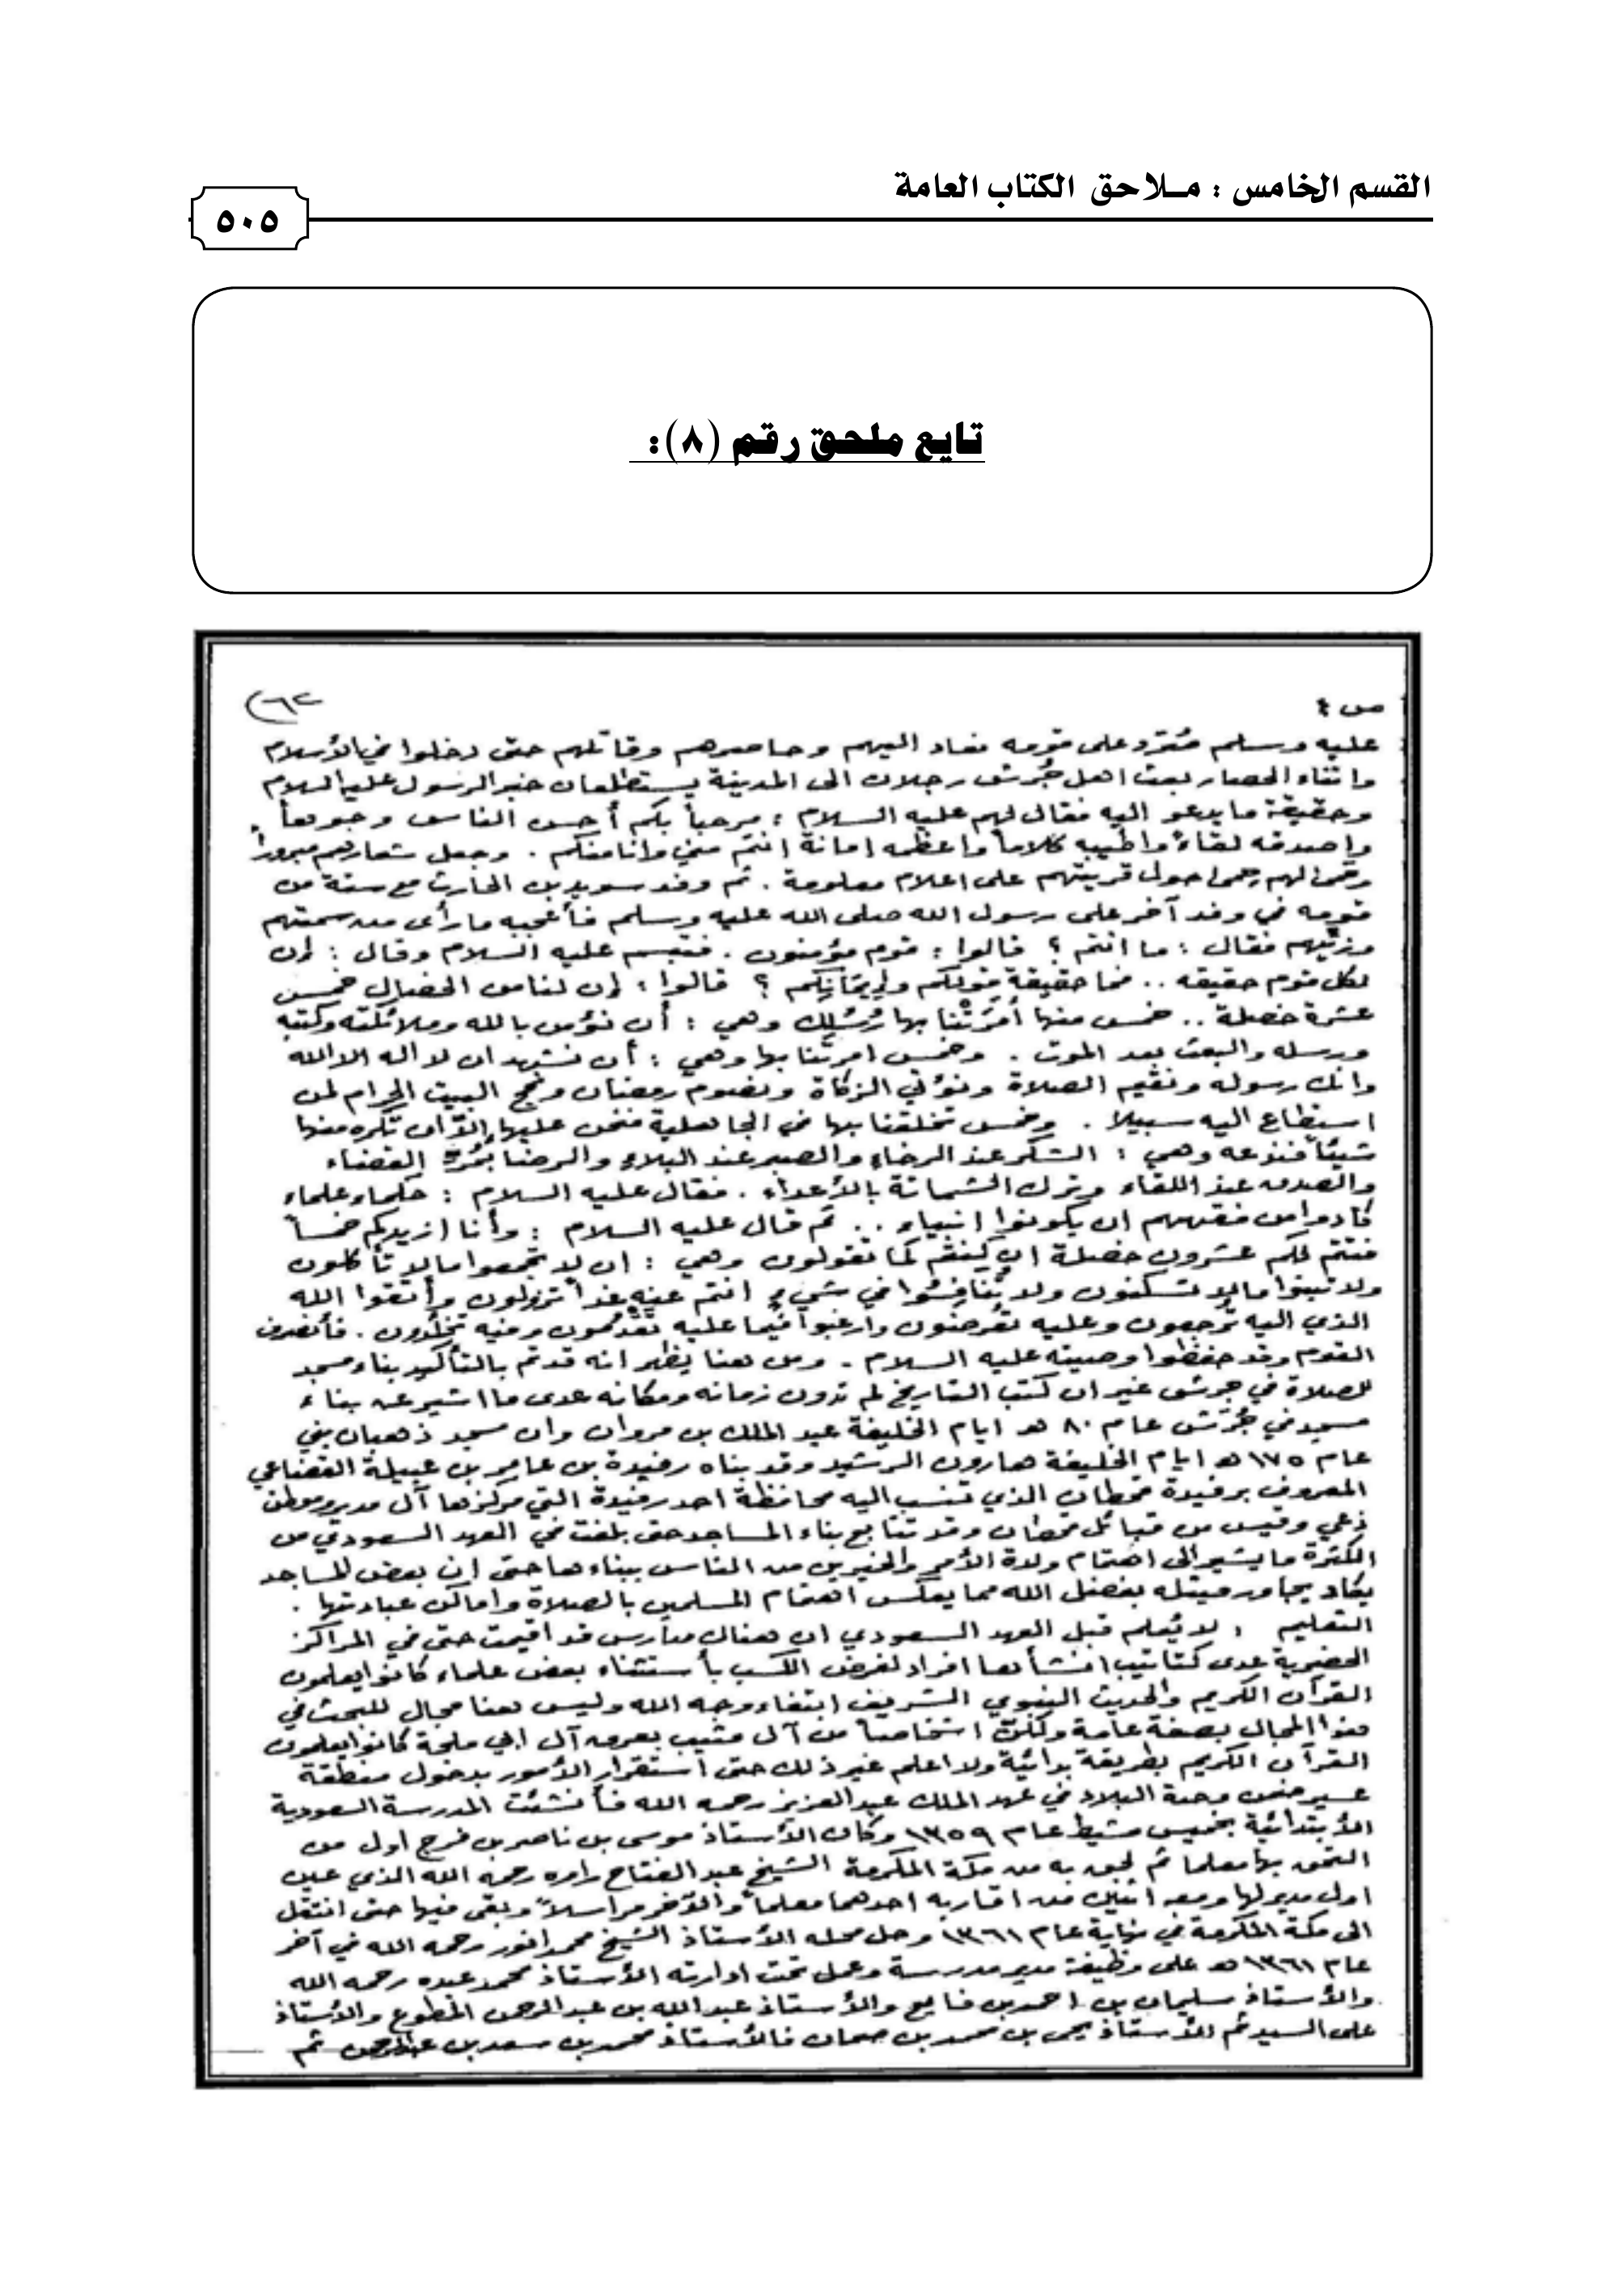 القسم الخامس : مـلاحق الكتاب العامة
٥٠٥
تابع ملحق رقم (٨):
ص ٤
عليه وسلم فمرد على قومه فعاد اليهم وحاصرهم وقاتلهم حتى دخلوا في الأسلام
واثناء الحصار بعث اهل جُرش رجلان الى المدينة يستطلعان خبر الرسول عليه السلام
وحقيقة ما يدعو اليه فقال لهم عليه السلام : مرحباً بكم أحسن الناس وجوهاً
واصدقه لقاءً واطيبه كلاماً واعظمه امانة انتم مني وانا منكم . وجعل شعارهم مبروراً
وحمى لهم حمى حول قريتهم على اعلام معلومة . ثم وفد سويد بن الحارث مع ستة من
قومه في وفد آخر على رسول الله صلى الله عليه وسلم فأعجبه ما رأى من سمتهم
وزيّهم فقال : ما انتم ؟ قالوا : قوم مؤمنون . فتبسم عليه السلام وقال : إن
لكل قوم حقيقه .. فما حقيقة قولكم وإيمانكم ؟ قالوا : إن لنا من الخصال خمس
عشرة خصلة .. خمس منها أمَرَتْنا بها رُسُلك وهي : أن نؤمن بالله وملائكته وكتبه
ورسله والبعث بعد الموت . وخمس امرتنا بها وهي : أن نشهد ان لا اله الا الله
وانك رسوله ونقيم الصلاة ونؤتي الزكاة ونصوم رمضان ونحج البيت الحرام لمن
استطاع اليه سبيلا . وخمس تخلقنا بها في الجاهلية فنحن عليها إلاّ ان تكره منها
شيئاً فندعه وهي : الشكر عند الرخاء والصبر عند البلاء والرضا بمُرّ القضاء
والصدق عند اللقاء وترك الشماتة بالأعداء . فقال عليه السلام : حكماء علماء
كادوا من فقههم ان يكونوا انبياء .. ثم قال عليه السلام : وأنا ازيدكم خمساً
فتتم لكم عشرون خصلة ان كنتم كما تقولون وهي : ان لا تجمعوا مالا تأكلون
ولا تبنوا مالا تسكنون ولا تنافسوا في شيء انتم عنه غداً تزولون وأتقوا الله
الذي اليه تُرجعون وعليه تُعرضون وارغبوا فيما عليه تَقْدُمون وفيه تخلُدون . فأنصرف
القوم وقد حفظوا وصيته عليه السلام . ومن هنا يظهر انه قد تم بالتأكيد بناء مسجد
للصلاة في جرش غير ان كتب التاريخ لم تدون زمانه ومكانه عدى ما اشير عن بناء
مسجد في جُرش عام ٨٠ هـ ايام الخليفة عبد الملك بن مروان وان مسجد ذهبان بني
عام ١٧٥ هـ ايام الخليفة هارون الرشيد وقد بناه رفيدة بن عامر بن عبيلة القضاعي
المعروف برفيدة قحطان الذي تنسب اليه محافظة احد رفيدة التي مركزها آل مدير وموطن
ذعي وقيس من قبائل قحطان وقد تتابع بناء المساجد حتى بلغت في العهد السعودي من
الكثرة ما يشير الى اهتمام ولاة الأمر والخيرين من الناس ببناءها حتى ان بعض المساجد
يكاد يجاور مثيله بفضل الله مما يعكس اهتمام المسلمين بالصلاة واماكن عبادتها .
التعليم : لا يُعلم قبل العهد السعودي ان هناك مدارس قد اقيمت حتى في المراكز
الحضرية عدى كتاتيب انشأها افراد لغرض الكسب بأستثناء بعض علماء كانوا يعلمون
القرآن الكريم والحديث النبوي الشريف ابتغاء وجه الله وليس هنا مجال للبحث في
هذا المجال بصفة عامة ولكن اشخاصاً من آل مثيب بعرق آل ابي ملحة كانوا يعلمون
القرآن الكريم بطريقة بدائية ولا اعلم غير ذلك حتى استقرار الأمور بدخول منطقة
عسير ضمن وحدة البلاد في عهد الملك عبد العزيز رحمه الله فأنشئت المدرسة السعودية
الأبتدائية بخميس مشيط عام ١٣٥٩ وكان الأستاذ موسى بن ناصر بن فرج اول من
التحق بها معلما ثم لحق به من مكة المكرمة الشيخ عبد الفتاح راوه رحمه الله الذي عين
اول مدير لها ومعه اثنين من اقاربه احدهما معلماً والآخر مراسلاً وبقى فيها حتى انتقل
الى مكة المكرمة في نهاية عام ١٣٦١ وحل محله الأستاذ الشيخ محمد انور رحمه الله في آخر
عام ١٣٦١ هـ على وظيفة مدير مدرسة وعمل تحت ادارته الأستاذ محمد عبده رحمه الله
والأستاذ سليمان بن احمد بن فايع والأستاذ عبد الله بن عبد الرحمن المطوع والأستاذ
على السيد ثم الأستاذ يحي بن محمد بن صمان فالأستاذ محمد بن سعد بن عبدالرحمن ثم